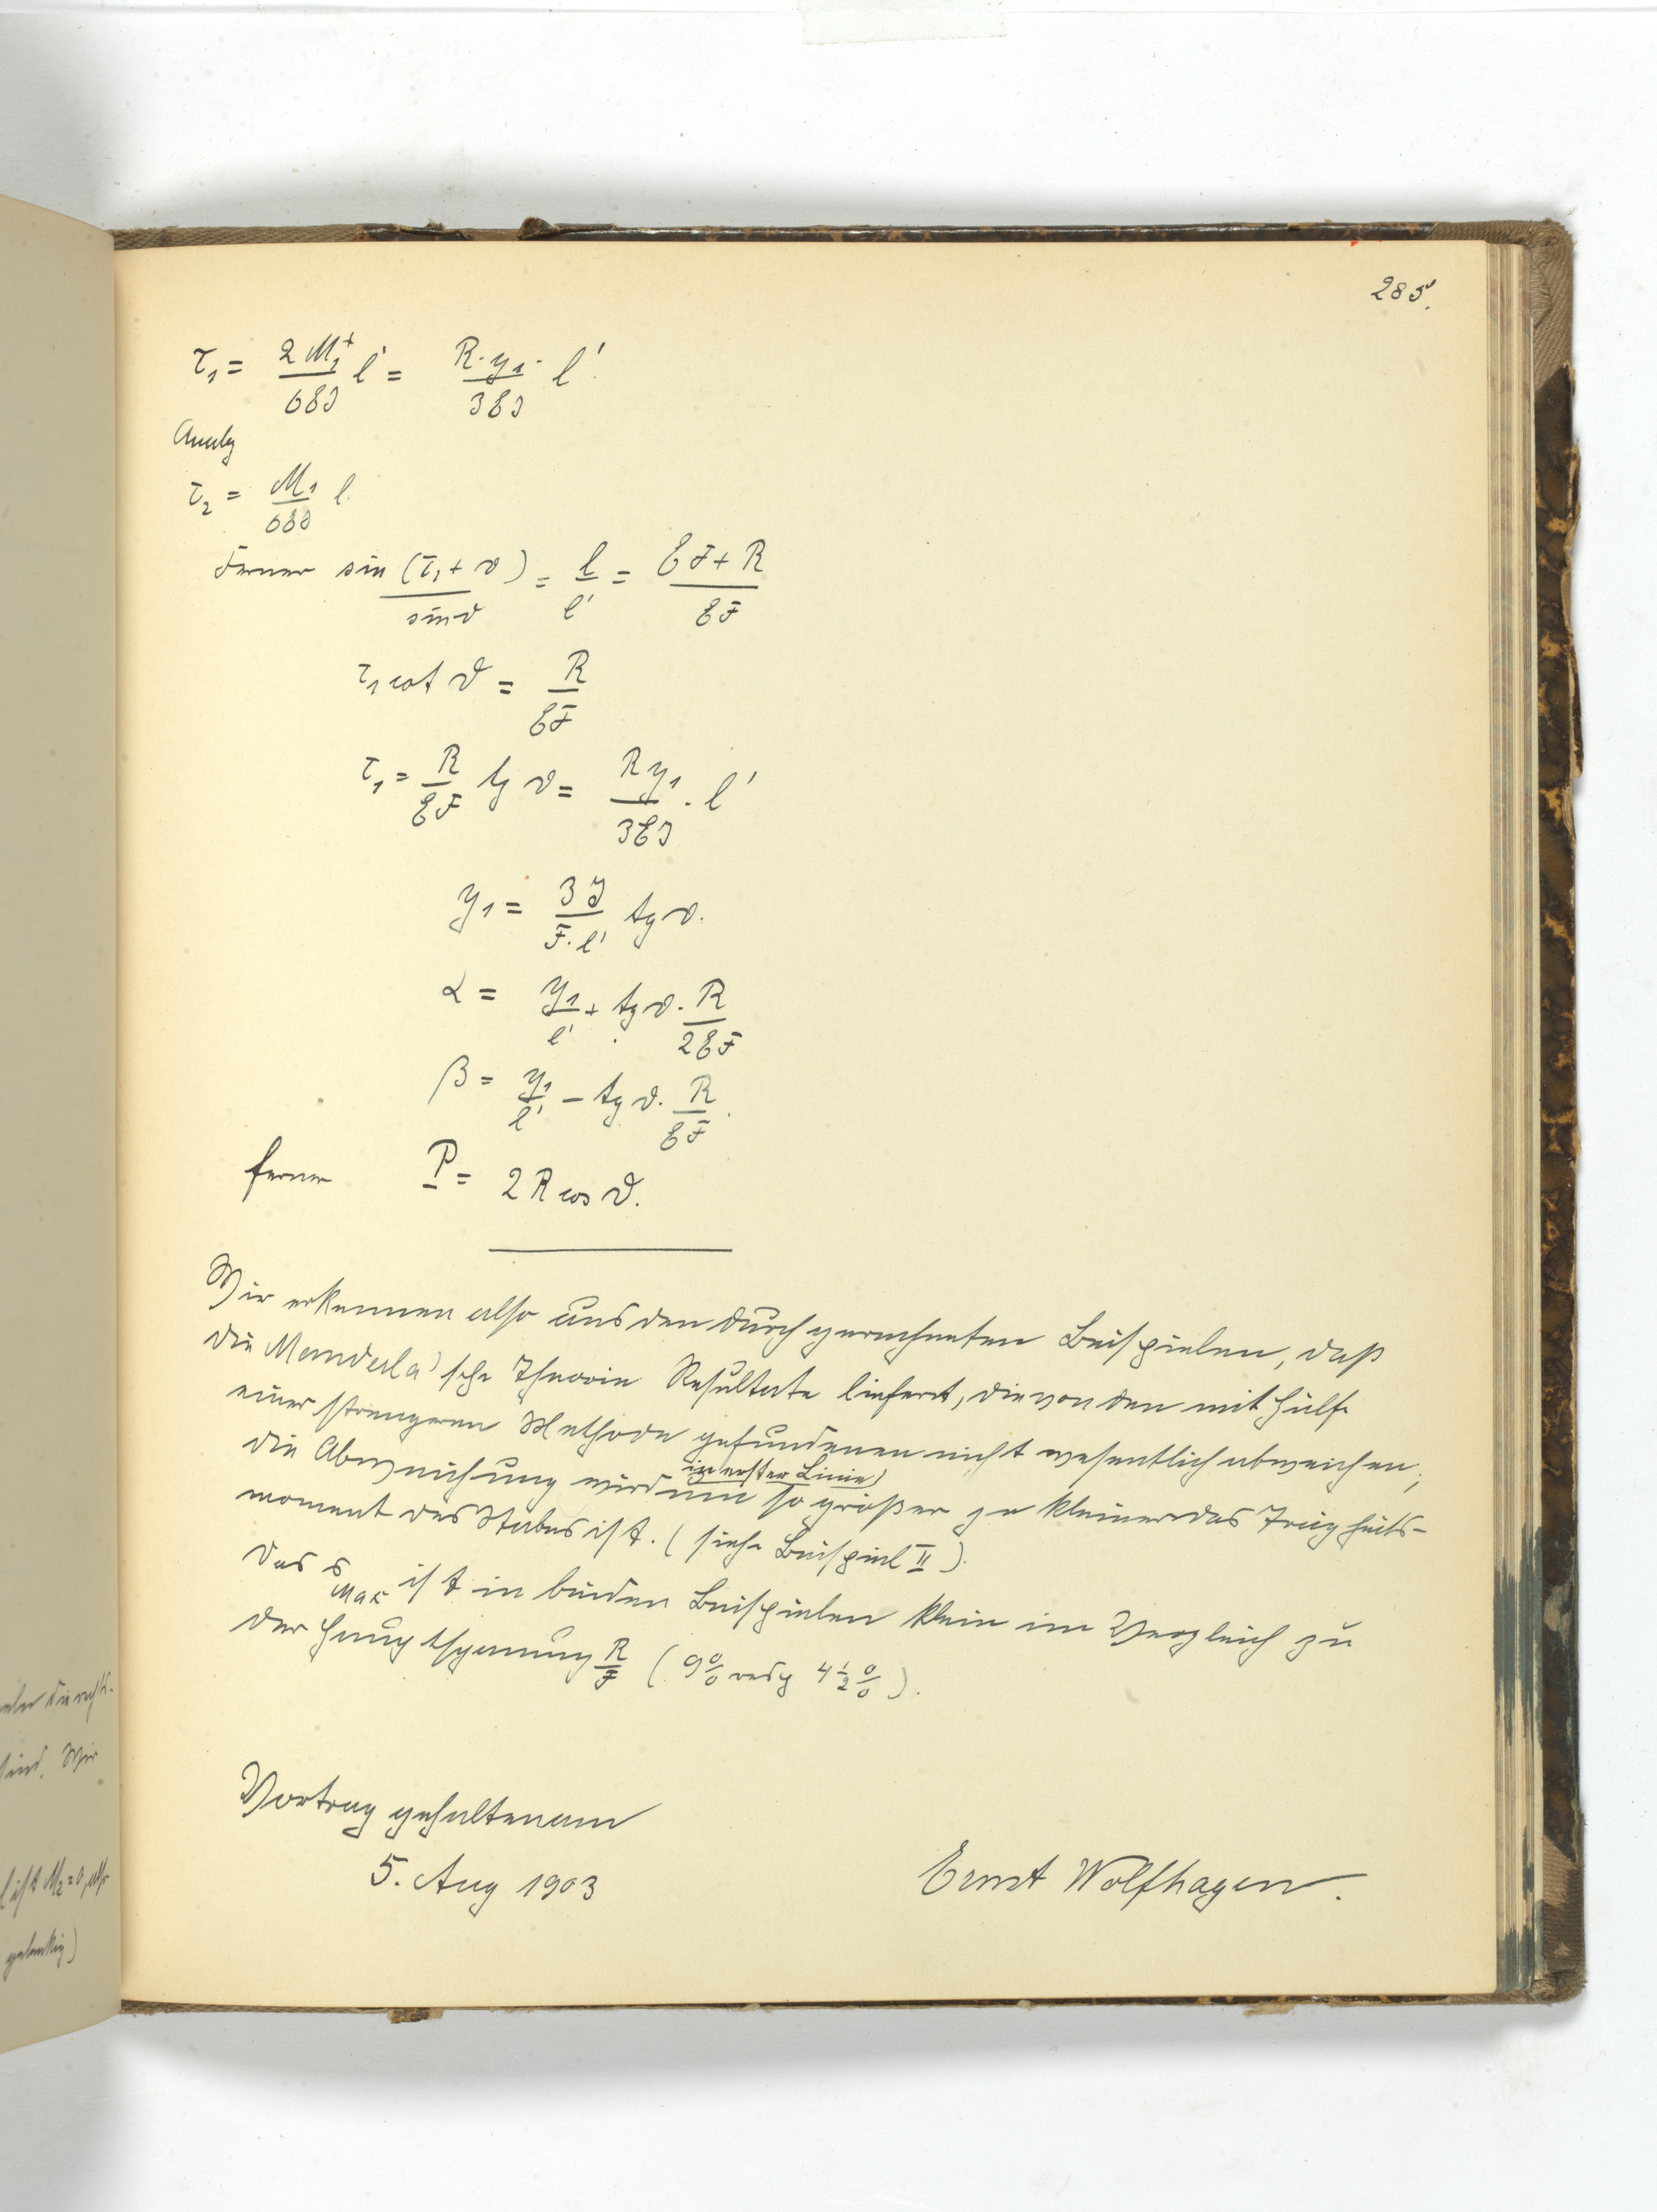 285.
τ₁ = 2 M₁⁺/6EJ l' = R·y₁·/3EJ l'
Analog
τ₂ = M₁/6EJ l
Ferner sin (τ₁ + ϑ)/sin ϑ = l/l' = EF + R/EF
τ₁ cot ϑ = R/EF
τ₁ = R/EF tg ϑ = R y₁/3EJ · l'
y₁ = 3J/F·l' tg ϑ.
α = y₁/l' + tg ϑ · R/2EF
β = y₁/l' − tg ϑ · R/EF.
ferner P = 2 R cos ϑ.
Wir erkennen also aus den durchgerechneten Beispielen, daß
die Manderla'sche Theorie Resultate liefert, die von den mit Hülfe
einer strengeren Methode gefundenen nicht wesentlich abweichen;
in erster Linie)
die Abweichung wird um so größer je kleiner das Trägheits-
moment des Stabes ist. (siehe Beispiel II).
Das σ Max ist in beiden Beispielen klein im Vergleich zu
der Hauptspannung R/F (9% resp 4½%).
Vortrag gehalten am
5. Aug 1903
Ernst Wolfhagen.
sind. Wir
ist M₂ = 0, also
gelenkig)